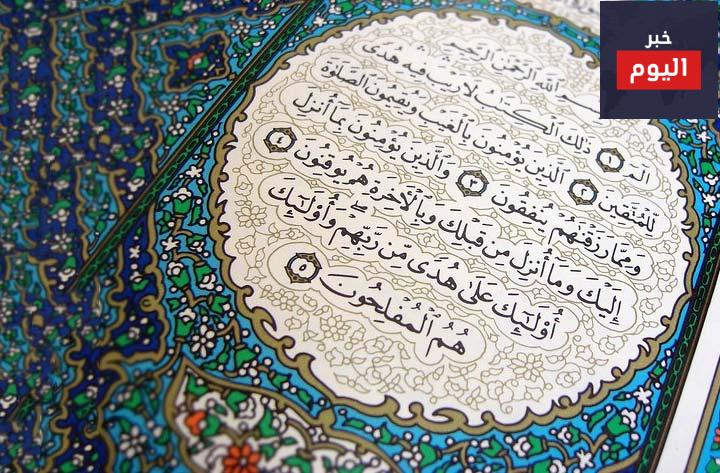 خبر
اليوم
بسم الله الرحمن الرحيم
الٓمٓ ١ ذَٰلِكَ ٱلْكِتَٰبُ لَا رَيْبَ فِيهِ هُدًى
لِّلْمُتَّقِينَ ٢ ٱلَّذِينَ يُؤْمِنُونَ بِٱلْغَيْبِ وَيُقِيمُونَ ٱلصَّلَوٰةَ
وَمِمَّا رَزَقْنَٰهُمْ يُنفِقُونَ ٣ وَٱلَّذِينَ يُؤْمِنُونَ بِمَآ أُنزِلَ
إِلَيْكَ وَمَآ أُنزِلَ مِن قَبْلِكَ وَبِٱلْءَاخِرَةِ هُمْ يُوقِنُونَ ٤
أُو۟لَٰٓئِكَ عَلَىٰ هُدًى مِّن رَّبِّهِمْ وَأُو۟لَٰٓئِكَ
هُمُ ٱلْمُفْلِحُونَ ٥